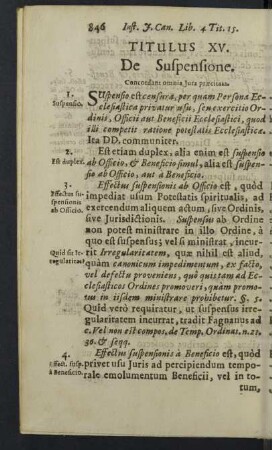 846 Inst. J. Can. Lib. 4 Tit. 15.
TITULUS XV.
De Suspensione.
Concordant omnia Jura præcitata.
1.
Suspensio.
SUspensio est censura, per quam Persona Ec-
clesiastica privatur usu, seu exercitio Or-
dinis, Officii aut Beneficii Ecclesiastici, quod
illi competit ratione potestatis Ecclesiasticæ.
Ita DD. communiter.
2.
Est duplex.
Est etiam duplex, alia enim est suspensio
ab Officio, & Beneficio simul, alia est suspen-
sio ab Officio, aut à Beneficio.
3.
Effectus su-
spensionis
ab Officio.
Effectus suspensionis ab Officio est, quòd
impediat usum Potestatis spiritualis, ad
exercendum aliquem actum, sive Ordinis,
sive Jurisdictionis. Suspensus ab Ordine
non potest ministrare in illo Ordine, à
quo est suspensus; vel si ministrat, incur-
rit Irregularitatem, quæ nihil est aliud,
Quid sit Ir-
regularitas?
quàm canonicum impedimentum, ex facto,
vel defectu proveniens, quò quis tam ad Ec-
clesiasticos Ordines promoveri, quàm promo-
tus in iisdem ministrare prohibetur. §. 5.
Quid verò requiratur, ut suspensus irre-
gularitatem incurrat, tradit Fagnanus ad
c. Vel non est compos, de Temp. Ordinat. n. 22.
30. & seqq.
4.
Effect. susp.
à Beneficio.
Effectus suspensionis à Beneficio est, quòd
privet usu Juris ad percipiendum tempo-
rale emolumentum Beneficii, vel in to-
tum,